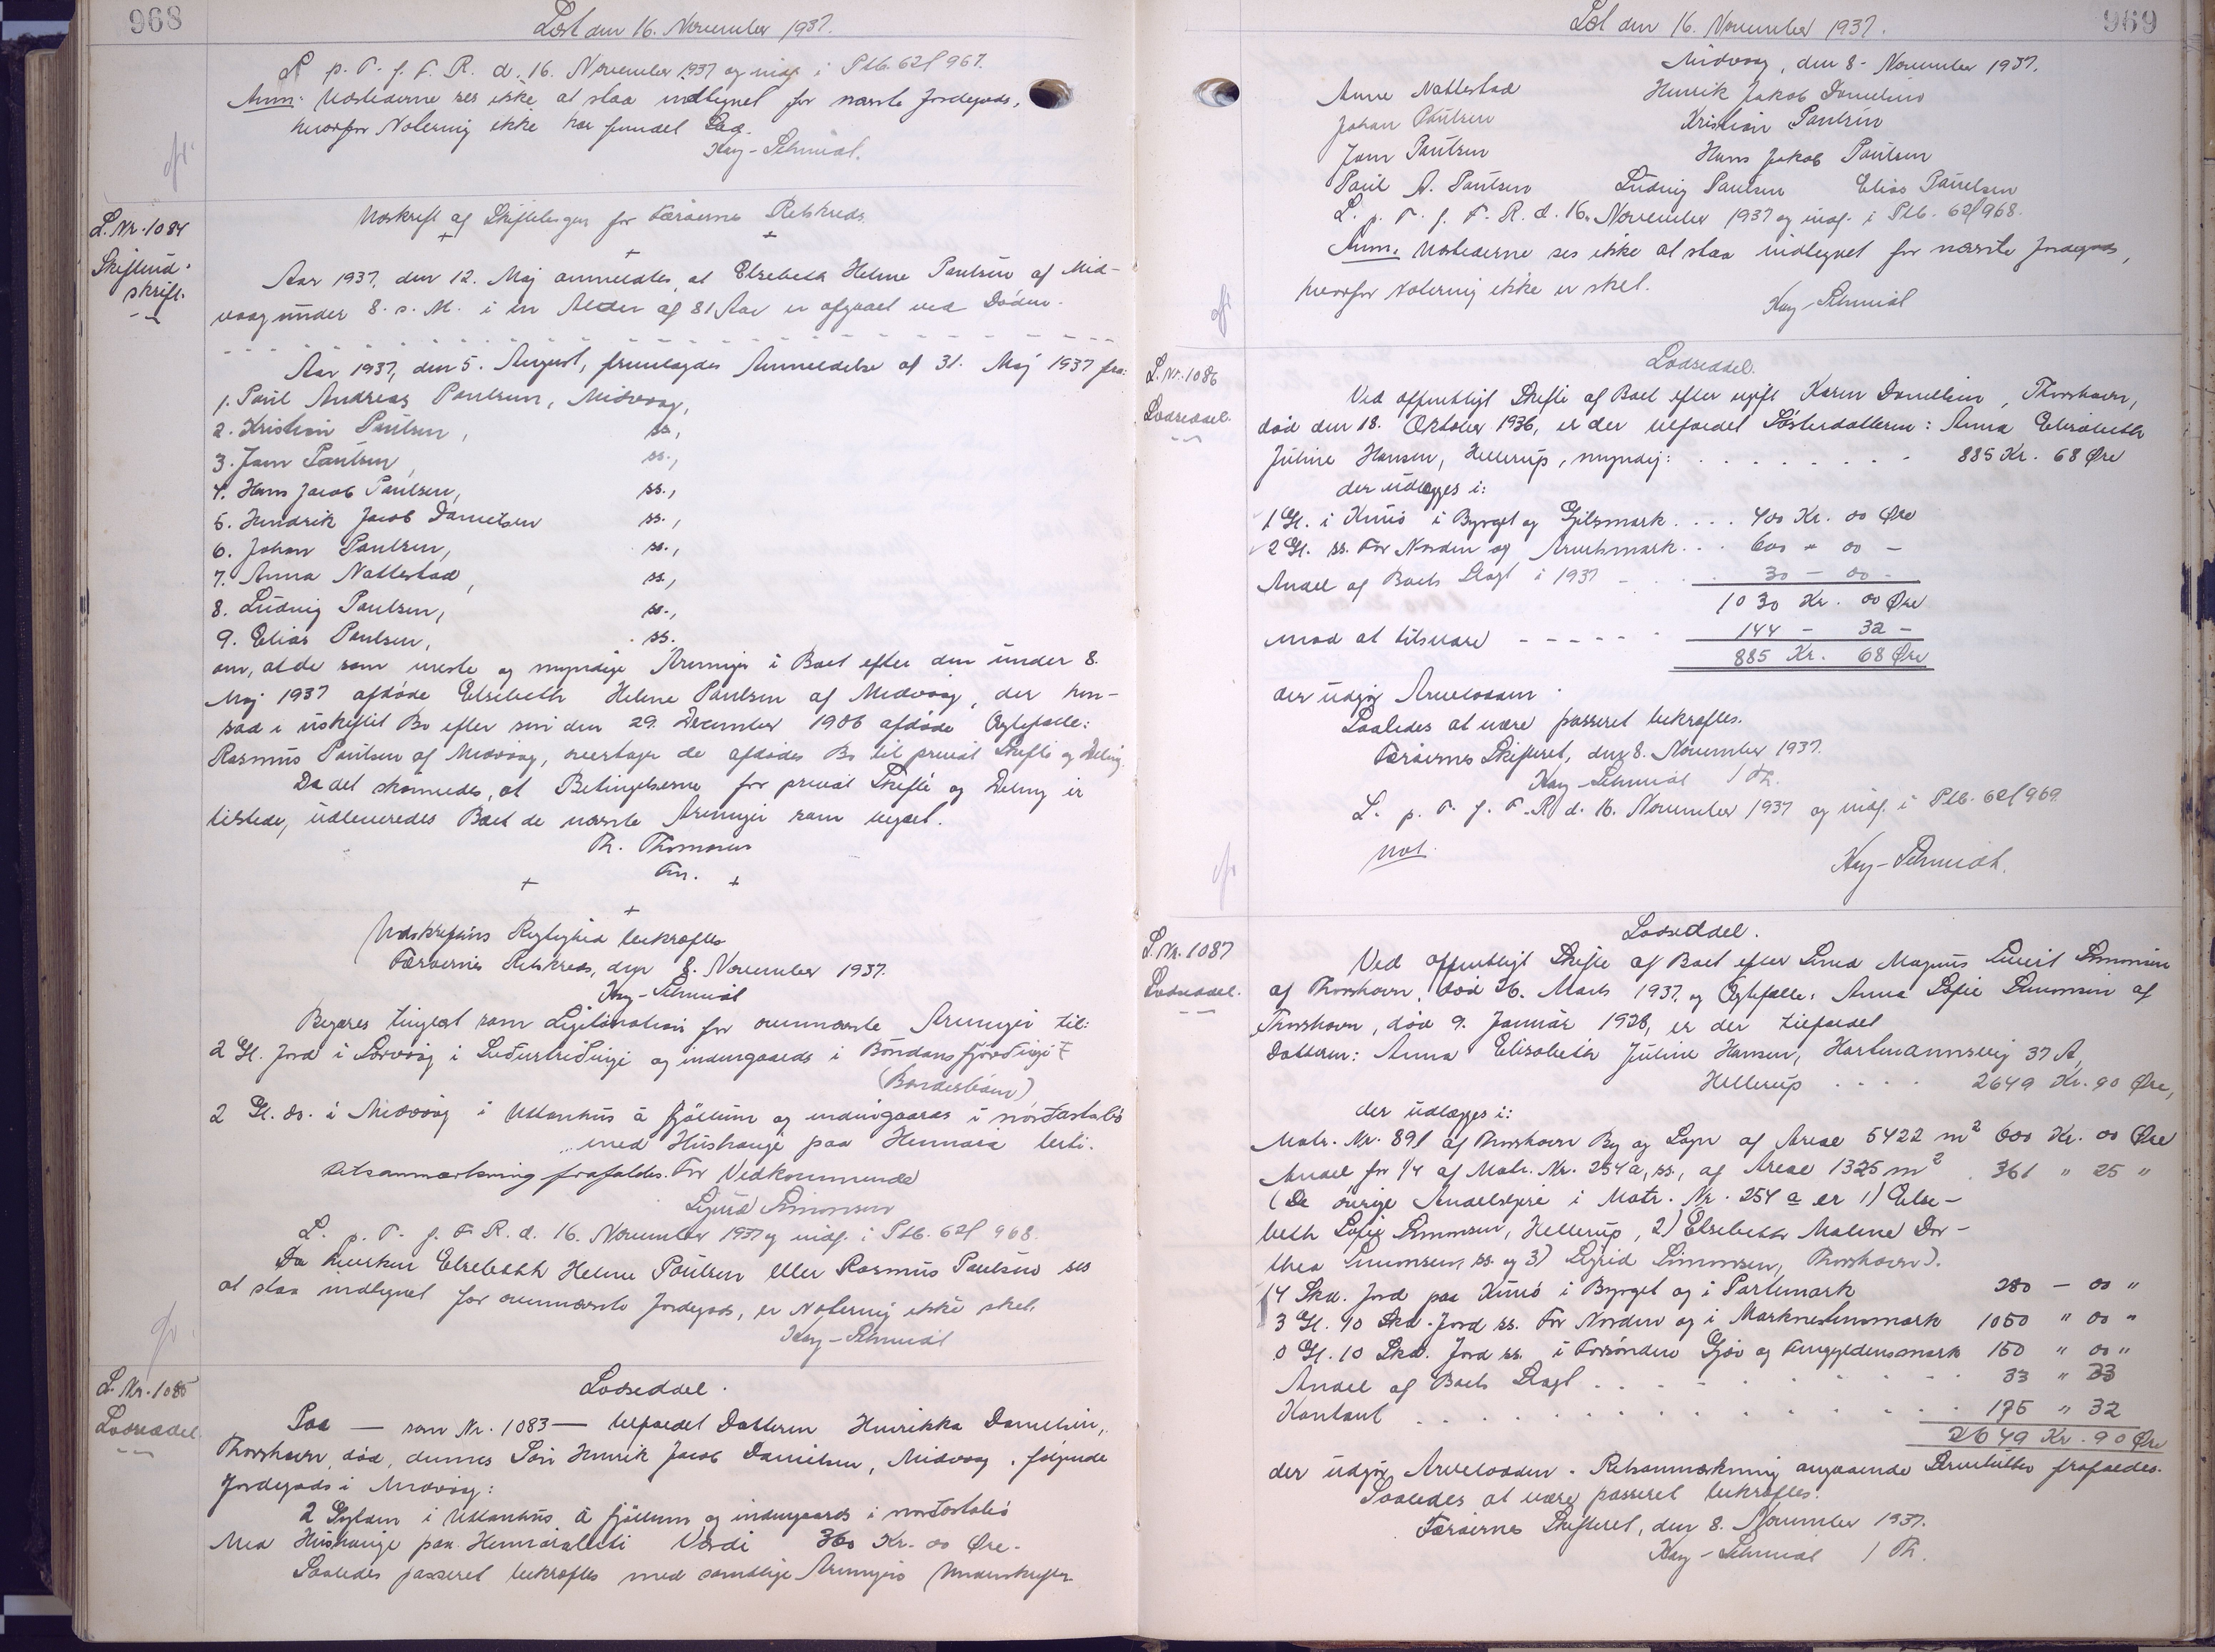 968
Læst den 16. November 1937.
L. p. T. f. F. R. d. 16. November 1937 og indf. i Ptb. 62f 967.
Anm: Udstederne ses ikke at staa indtegnet for nævnte Jordegods,
hvorfor Notering ikke har fundet Sted.
Kay-Schmidt.
L. Nr. 1084
Skifteud-
skrift.
Udskrift af Skiftebogen for Færøernes Retskreds.
Aar 1937, den 12. Maj anmeldtes, at Elsebeth Helene Paulsen af Mid-
vaag under 8. s. M. i en Alder af 81 Aar er afgaaet ved Døden.
Aar 1937, den 5. August, fremlagdes Anmeldelse af 31. Maj 1937 fra:
1. Paul Andreas Poulsen, Midvaag,
2. Kristian Paulsen, ss.,
3. Jam Paulsen, ss.,
4. Hans Jacob Paulsen, ss.,
5. Hendrik Jacob Danielsen ss.,
6. Johan Paulsen, ss.,
7. Anna Nattestad, ss.,
8. Ludvig Paulsen, ss.,
9. Elias Paulsen, ss.
om, at de som eneste og myndige Arvinger i Boet efter den under 8.
Maj 1937 afdøde Elsebeth Helene Paulsen af Midvaag, der hen-
sad i uskiftet Bo efter sin den 29. December 1906 afdøde Ægtefælle:
Rasmus Paulsen af Midvaag, overtager de afdødes Bo til privat Skifte og Deling.
Da det skønnedes, at Betingelserne for privat Skifte og Deling er
tilstede, udleveredes Boet de nævnte Arvinger som begært.
Th. Thomsen
Fm.
Udskriftens Rigtighed bekræftes
Færøernes Retskreds, den 8. November 1937.
Kay-Schmidt
Begæres tinglæst som Legitimation for ovennævnte Arvinger til:
2 Gl. Jord i Sørvaag i og indengaards i
2 Gl. ss. i Midvaag i Uttanhus á fjøllum og indengaards i norðastabø
med Hushauge paa Hennara
Retsanmærkning frafaldes. For Vedkommende
Sigurd Simonsen
L. p. T. f. F. R. d. 16. November 1937 og indf. i Ptb. 62f 968.
Da hverken Elsebeth Helene Paulsen eller Rasmus Paulsen ses
at staa indtegnet for ovennævnte Jordegods, er Notering ikke sket.
Kay-Schmidt
L. Nr. 1085
Lodseddel.
Lodseddel.
Paa — som Nr. 1083 — tilfaldet Datteren Henrikka Danielsen,
Thorshavn, død, dennes Søn Henrik Jacob Danielsen, Midvaag, følgende
Jordegods i Midvaag:
2 Gylden i Uttanhus á fjøllum og indengaards i norðastabø
Med Hushauge paa Værdi 360 Kr. 00 Øre.
Saaledes passeret bekræftes med samtlige Arvingers Underskrifter
969
Læst den 16. November 1937.
Midvaag, den 8. November 1937.
Anna Nattestad Henrik Jakob Danielsen
Johan Paulsen Kristian Paulsen
Jam Paulsen Hans Jakob Paulsen
Paul A. Paulsen Ludvig Paulsen Elias Paulsen
L. p. T. f. F. R. d. 16. November 1937 og indf. i Ptb. 62f 968.
Anm. Udstederne ses ikke at staa indtegnet for nævnte Jordegods,
hvorfor Notering ikke er sket.
Kay-Schmidt
L. Nr. 1086
Lodseddel.
Lodseddel.
Ved offentligt Skifte af Boet efter ugift Karen Danielsen, Thorshavn,
død den 18. Oktober 1936, er der tilfaldet Søsterdatteren: Anna Elisabeth
Juline Hansen, Hellerup, myndig: . . . . . . . 885 Kr. 68 Øre
der udlægges i:
1 Gl. i Kunø i Bygget og Gilsmark . . . 400 Kr. 00 Øre
2 Gl. ss. For Norden og . . . 600 " 00 -
Andel af Boets Slagt i 1937 - . . 30 - 00 -
1030 Kr. 00 Øre
mod at tilsvare - - - - - - 144 - 32 -
885 Kr. 68 Øre
der udgør Arvelodden.
Saaledes at være passeret bekræftes.
Færøernes Skifteret, den 8. November 1937.
Kay-Schmidt / Th.
L. p. T. f. F. R. d. 16. November 1937 og indf. i Ptb. 62f 969.
Not.
Kay-Schmidt.
L. Nr. 1087
Lodseddel.
Lodseddel.
Ved offentligt Skifte af Boet efter Magnus Simonsen
af Thorshavn, død 26. Marts 1937, og Ægtefælle: Anna Sofie Simonsen af
Thorshavn, død 9. Januar 1928, er der tilfaldet
Datteren: Anna Elisabeth Juline Hansen, Hartmannsvej 37 A,
Hellerup . . . . 2649 Kr. 90 Øre,
der udlægges i:
Matr. Nr. 891 af Thorshavn By og Sogn af Areal 5422 m² 600 Kr. 00 Øre
Andel for 1/4 af Matr. Nr. 254a, ss., af Areal 1325 m² . 361 " 25 "
(De øvrige Andelsejere i Matr. Nr. 254 a er 1) Else-
beth Sofie Simonsen, Hellerup, 2) Elsebeth Malene Dor-
thea Simonsen, ss. og 3) Sigrid Simonsen, Thorshavn).
14 Skd. Jord paa Kunø i Bygget og i Partemark 280 - 00 "
3 Gl. 10 Skd. Jord ss. For Norden og i 1050 " 00 "
0 Gl. 10 Skd. Jord ss. i og 150 " 00 "
Andel af Boets Slagt . . . . . . . . . 33 " 33
Kontant . . . . . . . . . . . . . 175 " 32
2649 Kr. 90 Øre
der udgør Arvelodden. Retsanmærkning angaaende frafaldes.
Saaledes at være passeret bekræftes.
Færøernes Skifteret, den 8. November 1937.
Kay-Schmidt / Th.